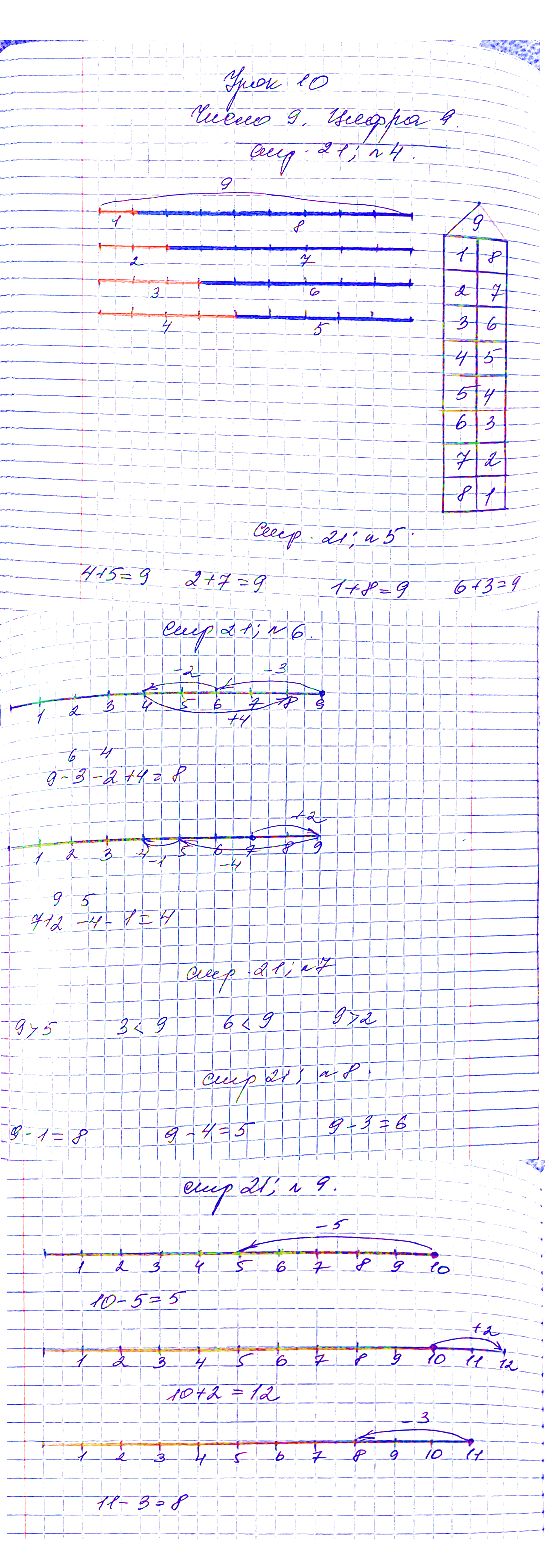 Урок 10
Число 9. Цифра 9.
стр. 21; № 4.
9
1 8
2 7
3 6
4 5
9
1 8
2 7
3 6
4 5
5 4
6 3
7 2
8 1
стр. 21; № 5.
4+5=9 2+7=9 1+8=9 6+3=9
стр 21; № 6.
-2 -3
1 2 3 4 5 6 7 8 9
+4
6 4
9-3-2+4=8
+2
1 2 3 4 5 6 7 8 9
-1 -4
9 5
7+2-4-1=4
стр. 21; № 7
9>5 3<9 6<9 9>2
стр 21; № 8.
9-1=8 9-4=5 9-3=6
стр 21; № 9.
-5
1 2 3 4 5 6 7 8 9 10
10-5=5
+2
1 2 3 4 5 6 7 8 9 10 11 12
10+2=12
-3
1 2 3 4 5 6 7 8 9 10 11
11-3=8